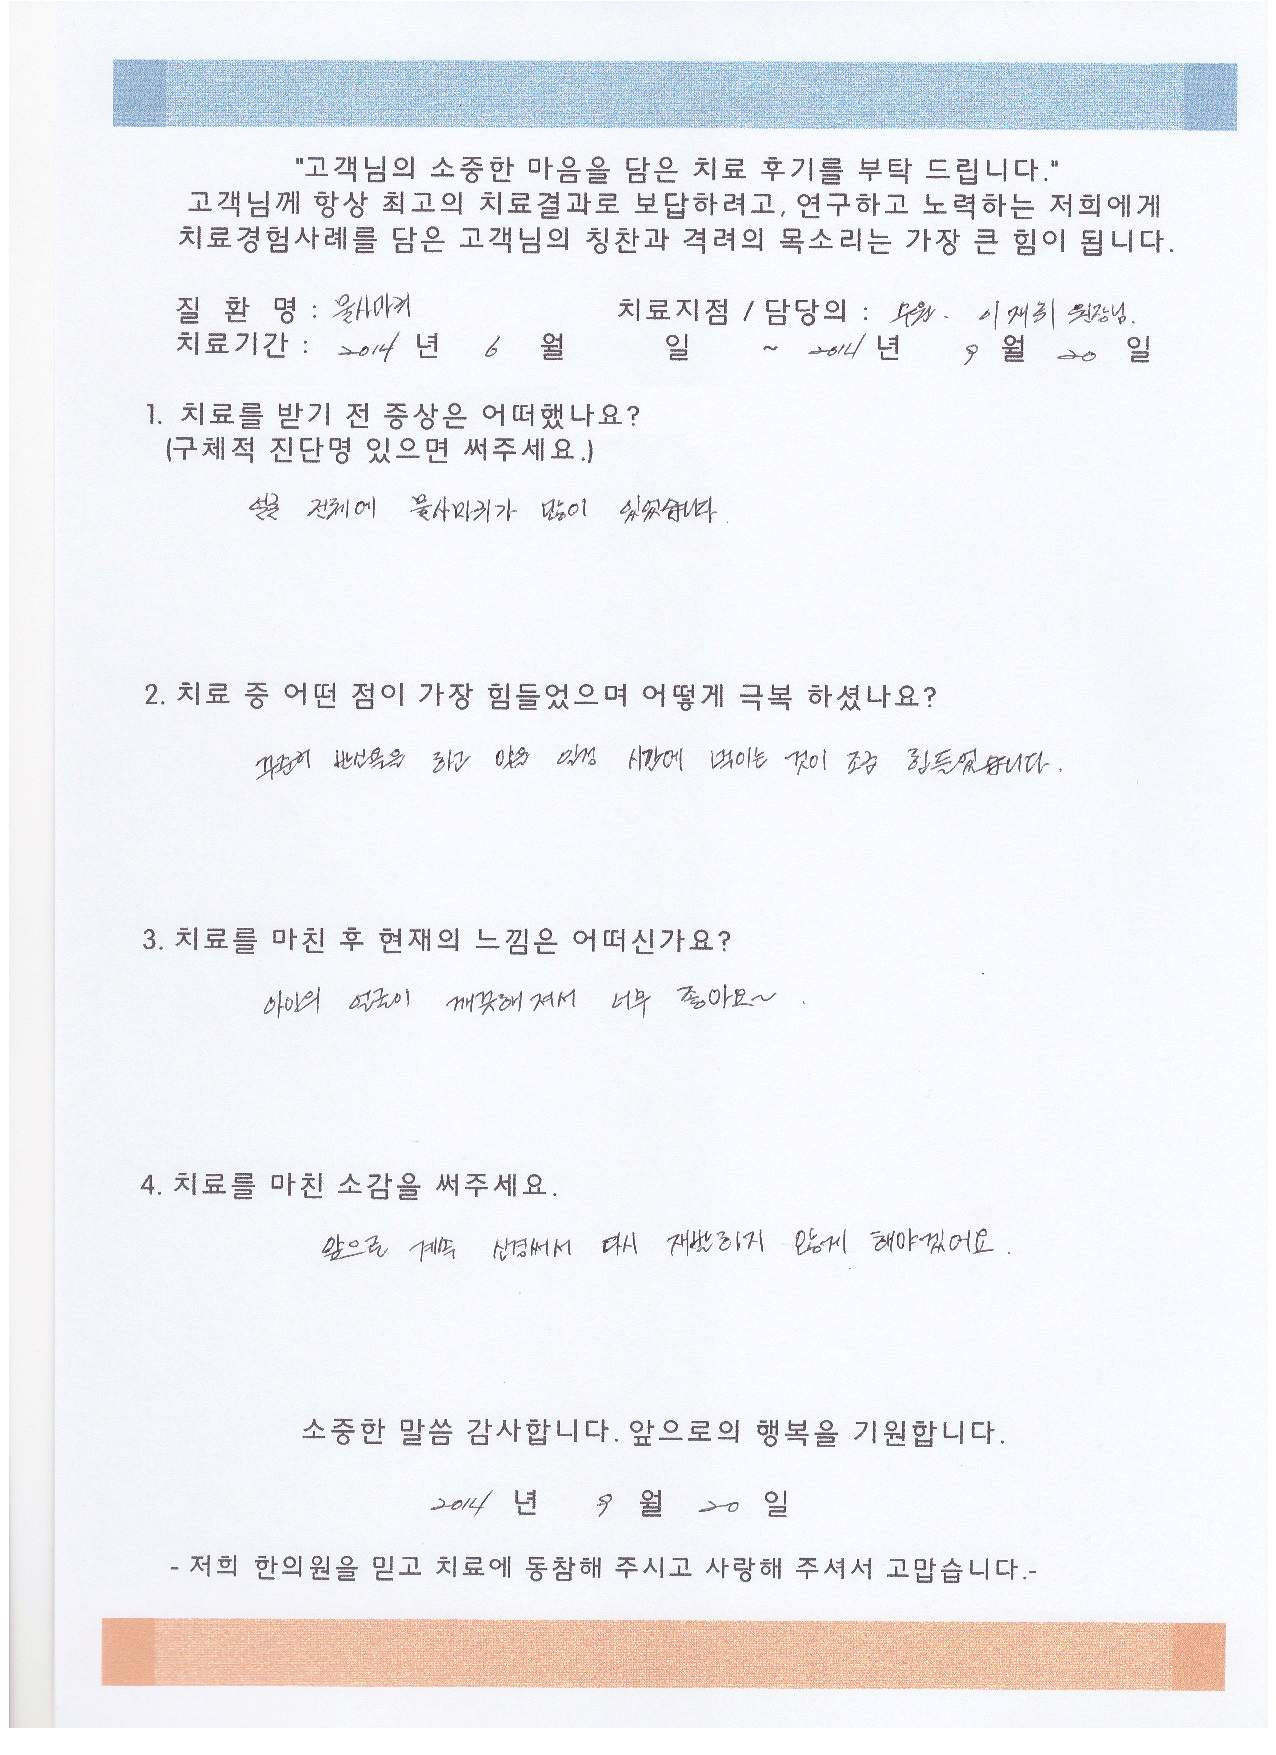 "고객님의 소중한 마음을 담은 치료 후기를 부탁 드립니다."
고객님께 항상 최고의 치료결과로 보답하려고, 연구하고 노력하는 저희에게
치료경험사례를 담은 고객님의 칭찬과 격려의 목소리는 가장 큰 힘이 됩니다.
질 환 명 : 물사마귀 치료지점 / 담당의 : 이재휘 원장님.
치료기간 : 2014 년 6 월 일 ~ 2014 년 9 월 20 일
1. 치료를 받기 전 증상은 어떠했나요?
(구체적 진단명 있으면 써주세요.)
얼굴 전체에 물사마귀가 많이 있었습니다.
2. 치료 중 어떤 점이 가장 힘들었으며 어떻게 극복 하셨나요?
꾸준히 반신욕을 하고 약을 일정 시간에 먹이는 것이 조금 힘들었습니다.
3. 치료를 마친 후 현재의 느낌은 어떠신가요?
아이의 얼굴이 깨끗해져서 너무 좋아요~.
4. 치료를 마친 소감을 써주세요.
앞으로 계속 신경써서 다시 재발하지 않게 해야겠어요.
소중한 말씀 감사합니다. 앞으로의 행복을 기원합니다.
2014 년 9 월 20 일
- 저희 한의원을 믿고 치료에 동참해 주시고 사랑해 주셔서 고맙습니다.-